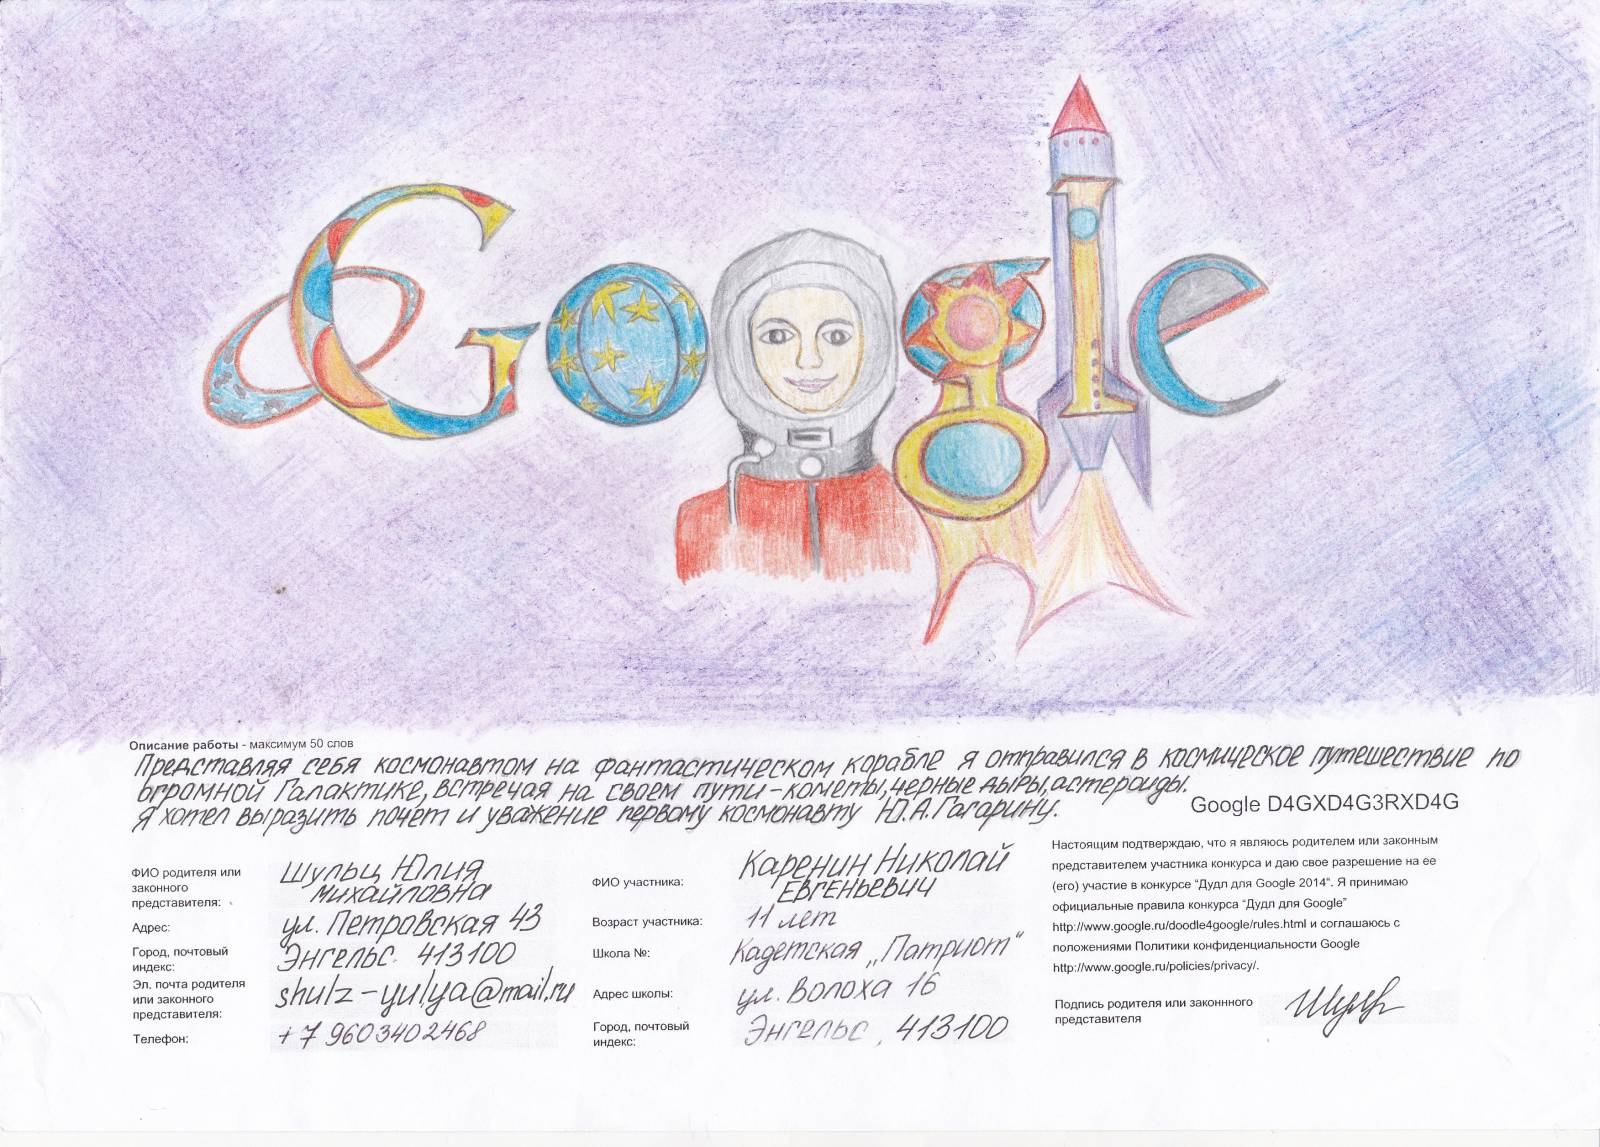 Google
Описание работы - максимум 50 слов
Представляя себя космонавтом на фантастическом корабле я отправился в космическое путешествие по
огромной Галактике, встречая на своем пути - кометы, черные дыры, астероиды.
Я хотел выразить почет и уважение первому космонавту Ю.А.Гагарину.
Google D4GXD4G3RXD4G
ФИО родителя или
законного
представителя:
Шульц Юлия
Михайловна
Адрес:
ул. Петровская 43
Город, почтовый
индекс:
Энгельс 413100
Эл. почта родителя
или законного
представителя:
shulz-yulya@mail.ru
Телефон:
+7 9603402468
ФИО участника:
Каренин Николай
Евгеньевич
Возраст участника:
11 лет
Школа №:
Кадетская „Патриот“
Адрес школы:
ул. Волоха 16
Город, почтовый
индекс:
Энгельс, 413100
Настоящим подтверждаю, что я являюсь родителем или законным
представителем участника конкурса и даю свое разрешение на ее
(его) участие в конкурсе "Дудл для Google 2014". Я принимаю
официальные правила конкурса "Дудл для Google"
http://www.google.ru/doodle4google/rules.html и соглашаюсь с
положениями Политики конфиденциальности Google
http://www.google.ru/policies/privacy/.
Подпись родителя или законнного
представителя